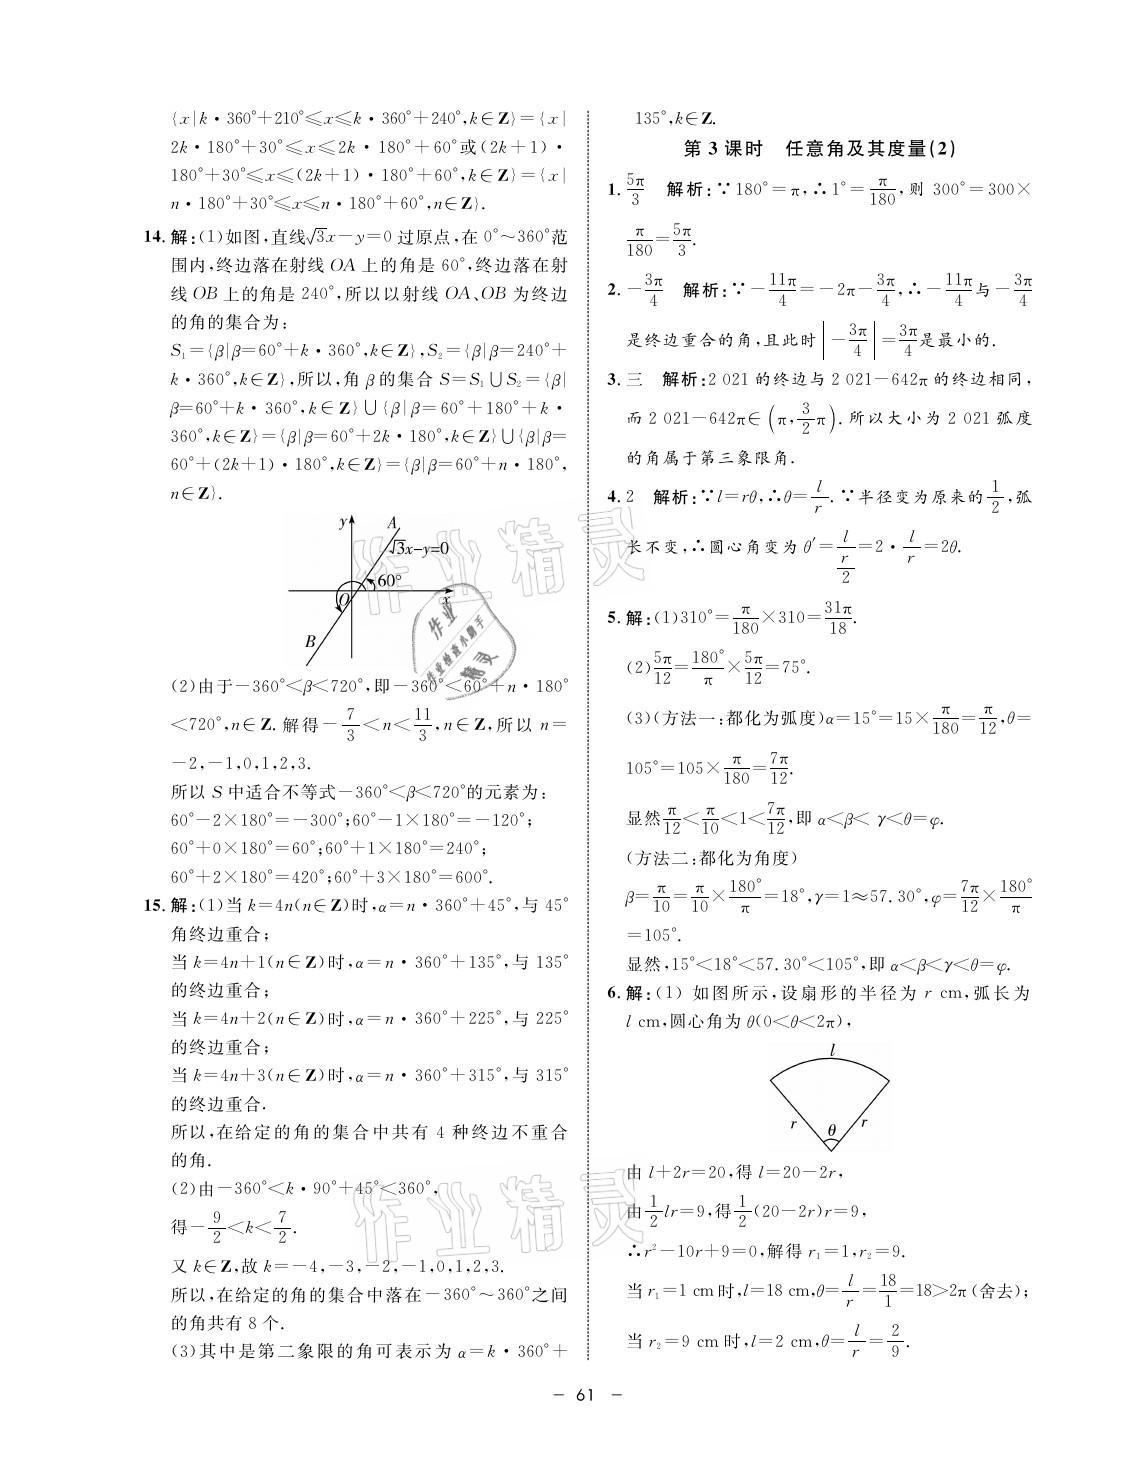 {x|k·360°+210°≤x≤k·360°+240°,k∈Z}={x|
2k·180°+30°≤x≤2k·180°+60°或(2k+1)·
180°+30°≤x≤(2k+1)·180°+60°,k∈Z}={x|
n·180°+30°≤x≤n·180°+60°,n∈Z}.
14.解:(1)如图,直线√3x-y=0过原点,在0°~360°范
围内,终边落在射线OA上的角是60°,终边落在射
线OB上的角是240°,所以以射线OA、OB为终边
的角的集合为:
S₁={β|β=60°+k·360°,k∈Z},S₂={β|β=240°+
k·360°,k∈Z},所以,角β的集合S=S₁∪S₂={β|
β=60°+k·360°,k∈Z}∪{β|β=60°+180°+k·
360°,k∈Z}={β|β=60°+2k·180°,k∈Z}∪{β|β=
60°+(2k+1)·180°,k∈Z}={β|β=60°+n·180°,
n∈Z}.
y A
√3x-y=0
60°
O x
B
(2)由于-360°<β<720°,即-360°<60°+n·180°
<720°,n∈Z.解得-7/3<n<11/3,n∈Z,所以n=
-2,-1,0,1,2,3.
所以S中适合不等式-360°<β<720°的元素为:
60°-2×180°=-300°;60°-1×180°=-120°;
60°+0×180°=60°;60°+1×180°=240°;
60°+2×180°=420°;60°+3×180°=600°.
15.解:(1)当k=4n(n∈Z)时,α=n·360°+45°,与45°
角终边重合;
当k=4n+1(n∈Z)时,α=n·360°+135°,与135°
的终边重合;
当k=4n+2(n∈Z)时,α=n·360°+225°,与225°
的终边重合;
当k=4n+3(n∈Z)时,α=n·360°+315°,与315°
的终边重合.
所以,在给定的角的集合中共有4种终边不重合
的角.
(2)由-360°<k·90°+45°<360°,
得-9/2<k<7/2.
又k∈Z,故k=-4,-3,-2,-1,0,1,2,3.
所以,在给定的角的集合中落在-360°~360°之间
的角共有8个.
(3)其中是第二象限的角可表示为α=k·360°+
135°,k∈Z.
第3课时 任意角及其度量(2)
1.5π/3 解析:∵180°=π,∴1°=π/180,则300°=300×
π/180=5π/3.
2.-3π/4 解析:∵-11π/4=-2π-3π/4,∴-11π/4与-3π/4
是终边重合的角,且此时|-3π/4|=3π/4是最小的.
3.三 解析:2 021的终边与2 021-642π的终边相同,
而2 021-642π∈(π,3/2π).所以大小为2 021弧度
的角属于第三象限角.
4.2 解析:∵l=rθ,∴θ=l/r.∵半径变为原来的1/2,弧
长不变,∴圆心角变为θ′=l/(r/2)=2·l/r=2θ.
5.解:(1)310°=π/180×310=31π/18.
(2)5π/12=180°/π×5π/12=75°.
(3)(方法一:都化为弧度)α=15°=15×π/180=π/12,θ=
105°=105×π/180=7π/12.
显然π/12<π/10<1<7π/12,即α<β<γ<θ=φ.
(方法二:都化为角度)
β=π/10=π/10×180°/π=18°,γ=1≈57.30°,φ=7π/12×180°/π
=105°.
显然,15°<18°<57.30°<105°,即α<β<γ<θ=φ.
6.解:(1)如图所示,设扇形的半径为r cm,弧长为
l cm,圆心角为θ(0<θ<2π),
l
r θ r
由l+2r=20,得l=20-2r,
由1/2lr=9,得1/2(20-2r)r=9,
∴r²-10r+9=0,解得r₁=1,r₂=9.
当r₁=1 cm时,l=18 cm,θ=l/r=18/1=18>2π(舍去);
当r₂=9 cm时,l=2 cm,θ=l/r=2/9.
- 61 -
作业精灵
作业
作业检查小助手
精灵
作业精灵